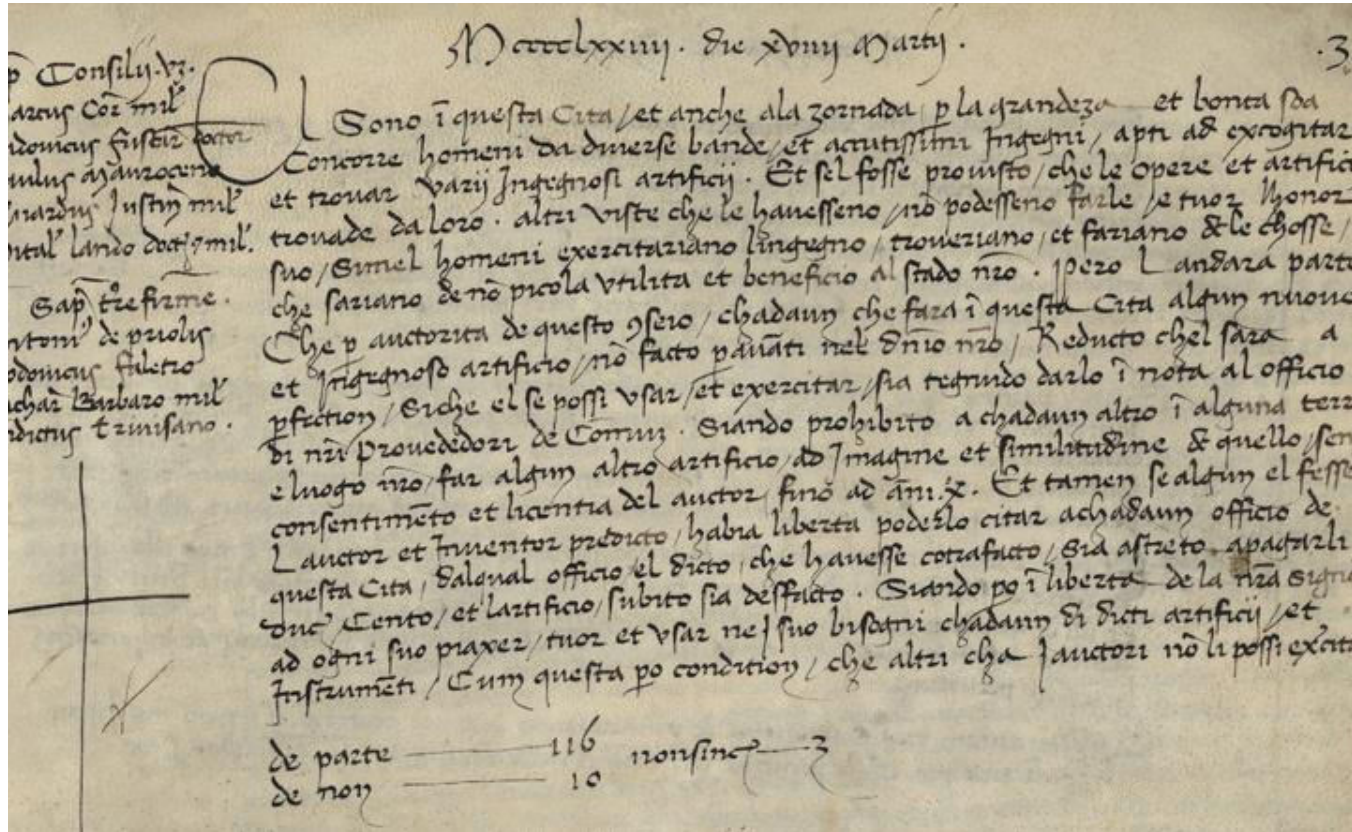 Mcccclxxiiii . die xviiii Martii .
.3
Consilii . vz .
arcus Cor̄ mil̄
doctor
aulus Mauroceno
Justin̄ mil̄
lando mil̄ .
Sap̄
de priolis
odovicus faletro
achar̄ Barbaro mil̄
trivisano .
El Sono ī questa Cita / et anche ala zornada p la grandeza et bonta soa
Concorre homeni da diverse bande / et acutissimi Ingegni / apti ad excogitar
et trovar varij Ingegnosi artificij . Et sel fosse provisto / che le opere et artificii
trovade da loro . altri viste che le havesseno / nō podesseno farle / e tuor lhonor
suo / Simel homeni exercitariano lingegno / troveriano / et fariano de le chosse /
che sariano de nō picola utilita et beneficio al stado nrō . Pero Landara parte
Che p auctorita de questo 9seio / chadaun che fara ī questa Cita algun nuovo
et Ingegnoso artificio / nō facto p avāti nel dnīo nrō / Reducto chel sara a
pfection / Siche el se possi usar / et exercitar / sia tegnudo darlo ī nota al officio
di nrī Provededori de Comun . Siando prohibito a chadaun altro ī alguna terr
e luogo nrō / far algun altro artificio / ad Imagine et similitudine de quello / sen
consentimēto et licentia del auctor / fino ad āni .x. Et tamen se algun el fesse
Lauctor et Inventor predicto / habia liberta poderlo citar a chadaun officio de
questa Cita / dal qual officio / el dicto / che havesse cōtrafacto / Sia astreto apagarli
duc̄ Cento / et lartificio / subito sia desfacto . Siando po ī liberta de la nrā Signo
ad ogni suo piaxer / tuor et usar ne I suo bisogni chadaun di dicti artificij / et
Instrumēti / Cum questa po condition / che altri cha I auctori nō li possi excita
de parte 116 nonsinc̄ 3
de non 10